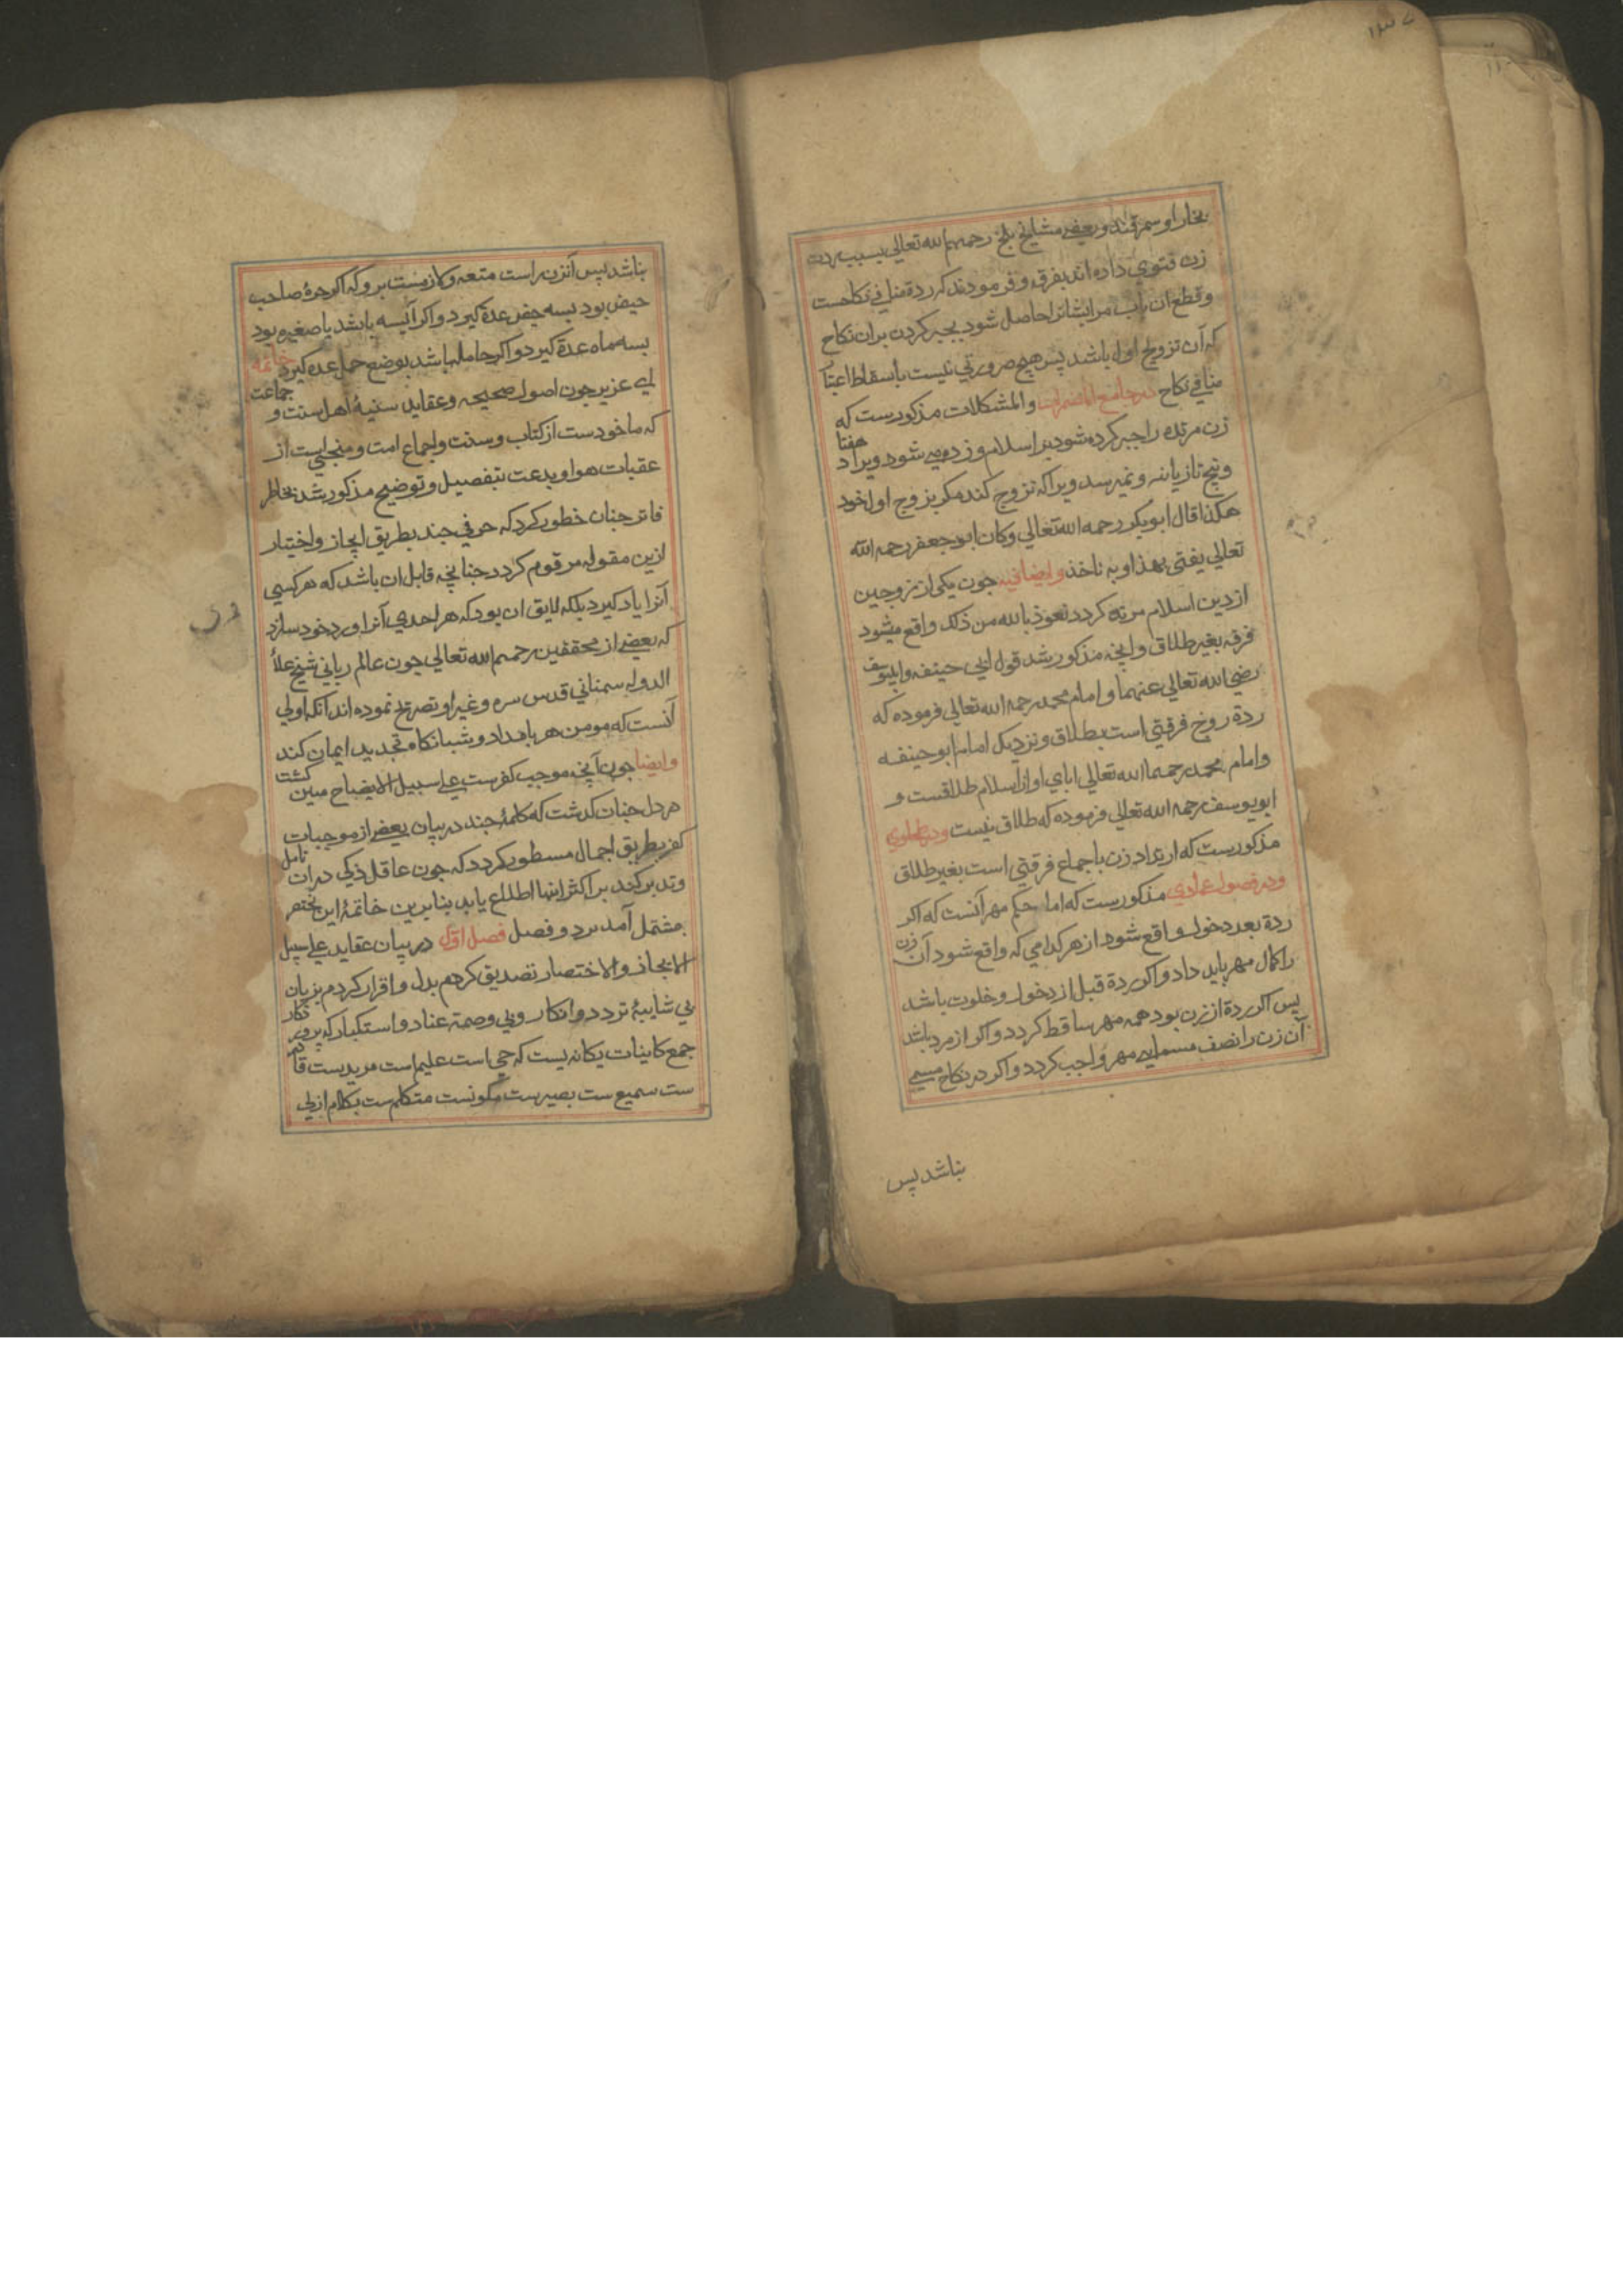 ۱۳۷
بخارا و سمرقند و بعضی مشایخ بلخ رحمهم الله تعالی بسبب ردت
زن فتوی داده اند بفرقه و فرمودند که ردة منافی نکاحست
و قطع ان باب مر ایشانرا حاصل شود بجبر کردن بران نکاح
که آن تزویج اول باشد پس هیچ ضرورتی نیست باسقاط اعتبار
منافی نکاح در جامع المضمرات و المشکلات مذکورست که
زن مرتده را جبر کرده شود بر اسلام و زده می شود ویرا هفتاد
و پنج تازیانه و نمیرسد ویرا که تزوج کند مکر بزوج اول خود
هکذا قال ابوبکر رحمه الله تعالی و کان ابو جعفر رحمه الله
تعالی یفتی بهذا و به ناخذ و ایضا فیه جون یکی از زوجین
از دین اسلام مرتد کردد نعوذ بالله من ذلک واقع میشود
فرقه بغیر طلاق و اینچه مذکور شد قول ابی حنیفه و ابیوسف
رضی الله تعالی عنهما و امام محمد رحمه الله تعالی فرموده که
ردة زوج فرقتی است بطلاق و نزدیک امام ابو حنیفه
و امام محمد رحمهما الله تعالی ابای او از اسلام طلاقست و
ابو یوسف رحمه الله تعالی فرموده که طلاق نیست و در طحاوی
مذکورست که ارتداد زن باجماع فرقتی است بغیر طلاق
و در فصول عمادی مذکورست که اما حکم مهر آنست که اکر
ردة بعد دخول واقع شود از هر کدامی که واقع شود آن زن
را کمال مهر باید داد و اکر ردة قبل از دخول و خلوت باشد
پس اکر ردة از زن بود همه مهر ساقط کردد و اکر از مرد باشد
آن زن را نصف مسمای مهر واجب کردد و اکر در نکاح مسمی
نباشد پس
نباشد پس آنزن راست متعه و لازمست برو که اکر حره صاحب
حیض بود بسه حیض عدة کیرد و اکر آیسه باشد یا صغیره بود
بسه ماه عدة کیرد و اکر حامله باشد بوضع حمل عده کیرد خاتمه
ای عزیز جون اصول صحیحه و عقاید سنیه اهل سنت و جماعت
که ماخودست از کتاب و سنت و اجماع امت و منجلیست از
عقبات هوا و بدعت بتفصیل و توضیح مذکور شد بخاطر
فاتر جنان خطور کرد که حرفی جند بطریق ایجاز و اختیار
ازین مقوله مرقوم کردد جنانچه قابل ان باشد که هر کسی
آنرا یاد کیرد بلکه لایق ان بود که هر احدی آنرا ورد خود سازد
که بعضی از محققین رحمهم الله تعالی جون عالم ربانی شیخ علاٴ
الدوله سمنانی قدس سره و غیر او تصریح نموده اند آنکه اولی
آنست که مومن هر بامداد و شبانکاه تجدید ایمان کند
و ایضا جون آنچه موجب کفرست علی سبیل الایضاح مبین کشت
در دل جنان کذشت که کلمهٔ جند در بیان بعضی از موجبات
کفر بطریق اجمال مسطور کردد که جون عاقل ذکی در ان تامل
و تدبر کند بر اکثر اینها اطلاع یابد بنابرین خاتمهٔ این مختصر
مشتمل آمد برد و فصل فصل اول در بیان عقاید علی سبیل
الایجاز و الاختصار تصدیق کردم بدل و اقرار کردم بزبان
بی شایبهٔ تردد و انکار و بی وصمة عناد و استکبار که پروردکار
جمع کاینات یکانه یست که حی است علیم است مریدست قادر
ست سمیع ست بصیرست مکونست متکلم ست بکلام ازلی